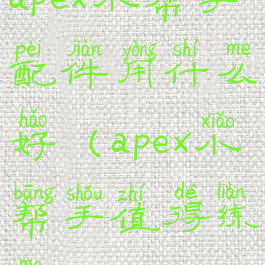 apex小帮手
pèi jiàn yòng shí me
配件用什么
hǎo xiǎo
好（apex小
bāng shǒu zhí dé liàn
帮手值得练
me